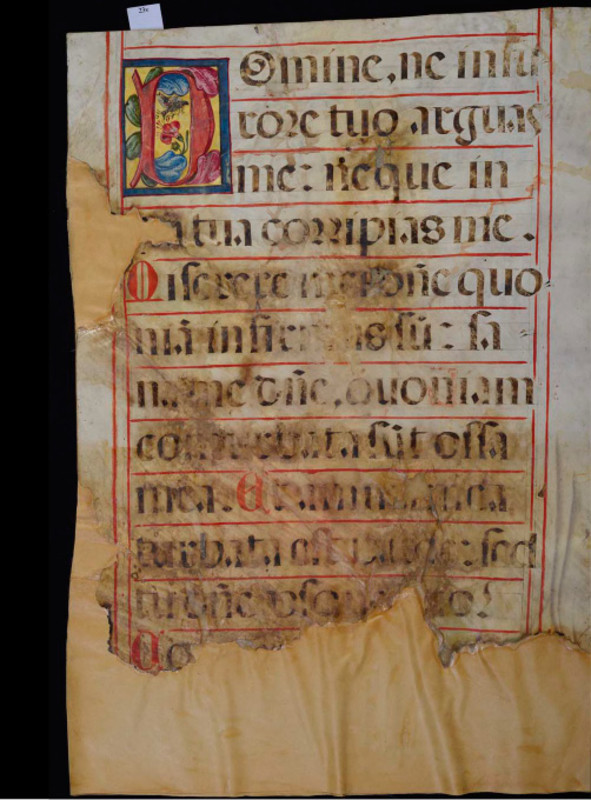 230
Domine, ne in fu
rore tuo arguas
me: neque in
tua corripias me.
Miserere mei dñe quo
niā infirmus sū: sa
na me dñe, quoniam
conturbata sūt ossa
mea. Et anima
turbata est valde: sed
tu dñe usque